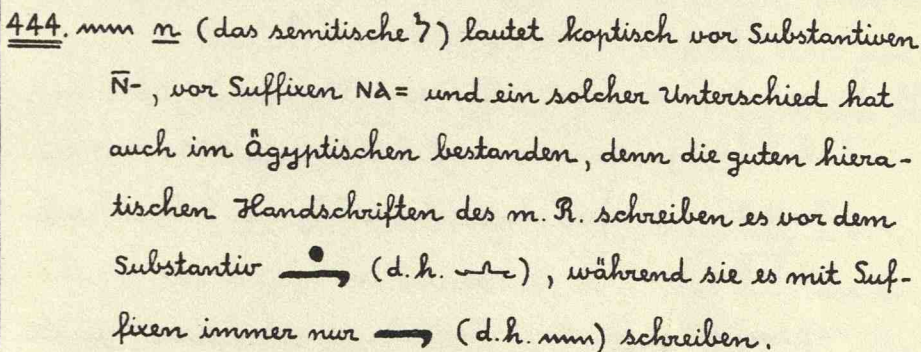 444. 𓈖 n (das semitische ל) lautet koptisch vor Substantiven
N̄-, vor Suffixen NA= und ein solcher Unterschied hat
auch im Ägyptischen bestanden, denn die guten hiera-
tischen Handschriften des m. R. schreiben es vor dem
Substantiv (d.h. 𓂜), während sie es mit Suf-
fixen immer nur (d.h. 𓈖) schreiben.